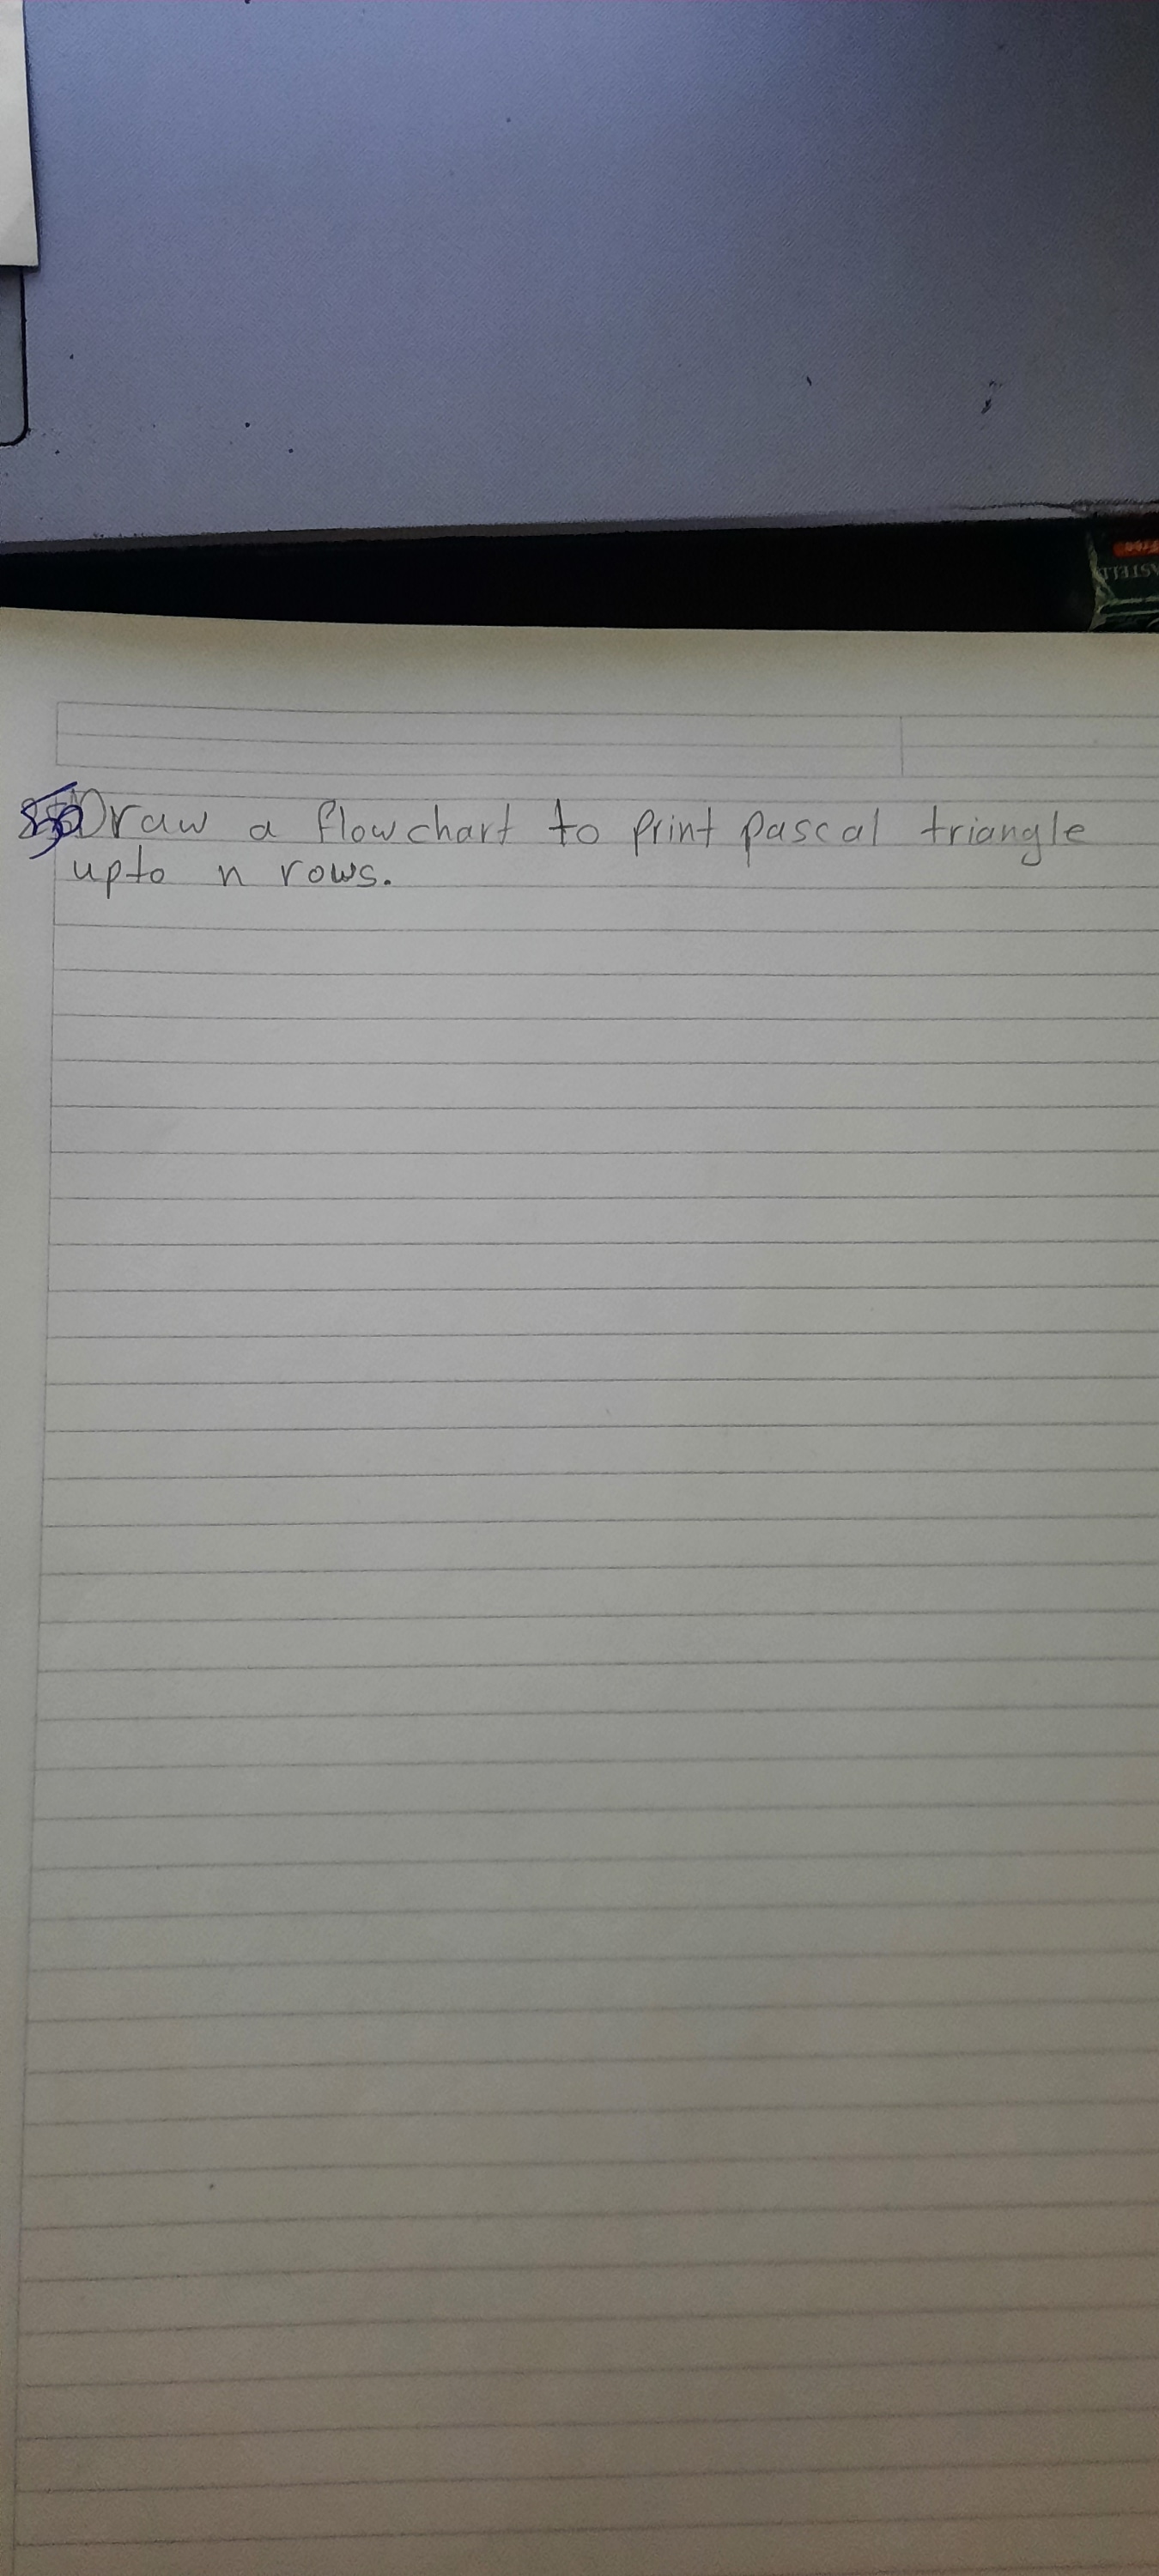 Draw a flowchart to print pascal triangle
upto n rows.